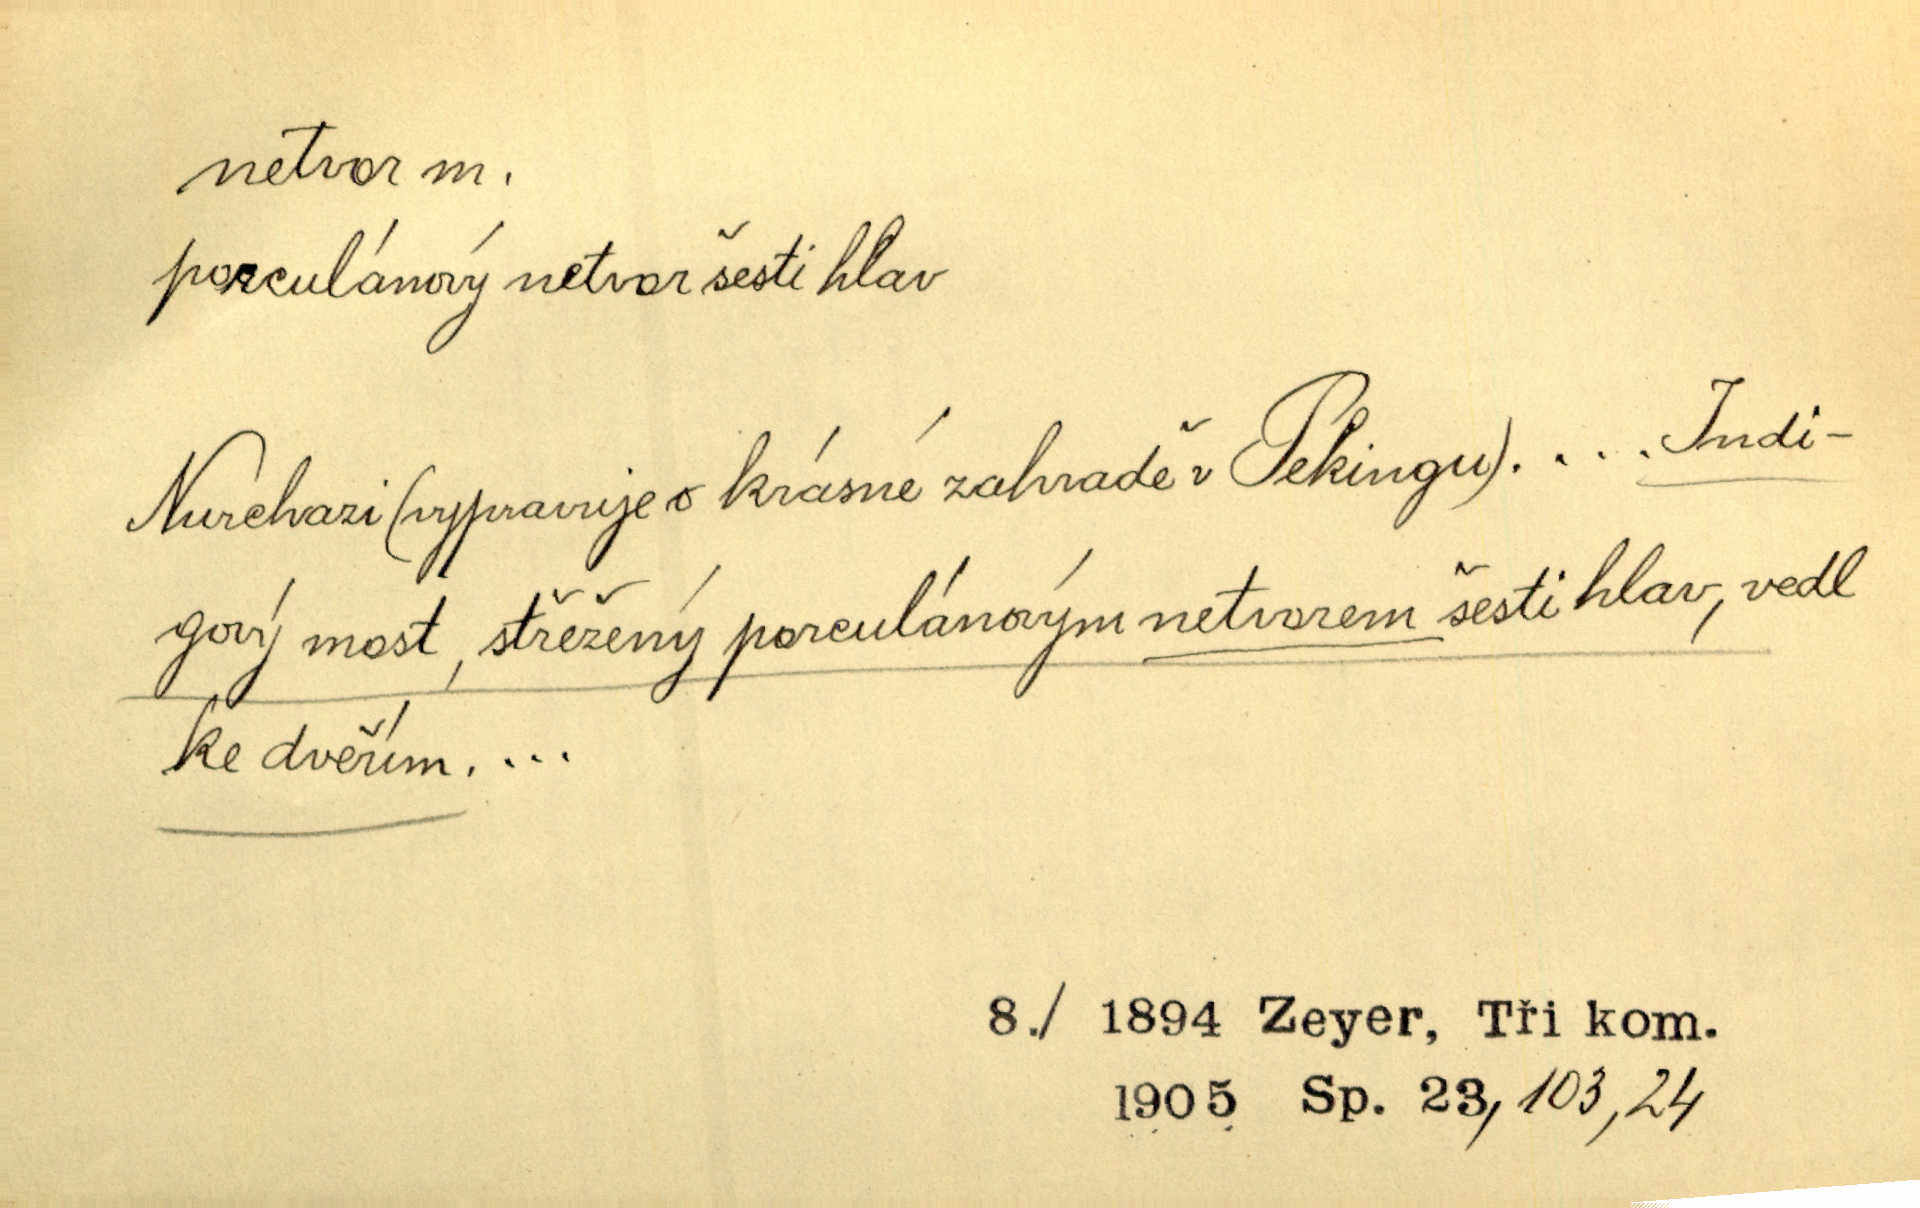 netvor m.
porculánový netvor šesti hlav
Nurchazi (vypravuje o krásné zahradě v Pekingu). . . . . Indi-
gový most, střežený porculánovým netvorem šesti hlav, vedl
ke dveřím. . . .
8./ 1894 Zeyer, Tři kom.
1905 Sp. 23, 103, 24